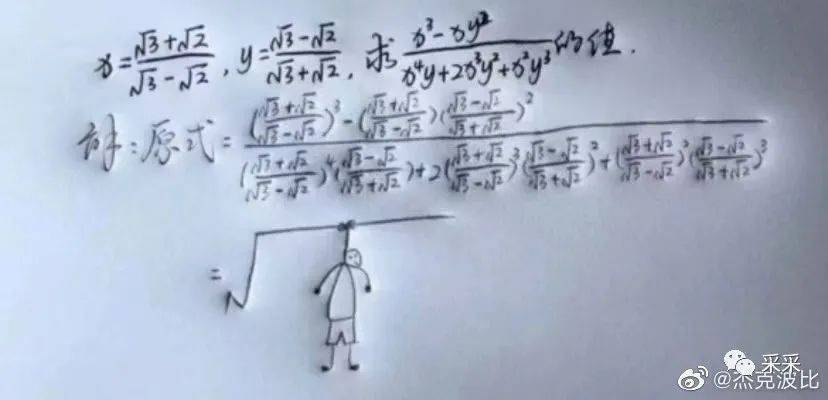 x=(√3+√2)/(√3-√2), y=(√3-√2)/(√3+√2), 求(x³-xy²)/(x⁴y+2x³y²+x²y³)的值.
解:原式=(((√3+√2)/(√3-√2))³-((√3+√2)/(√3-√2))((√3-√2)/(√3+√2))²)/(((√3+√2)/(√3-√2))⁴((√3-√2)/(√3+√2))+2((√3+√2)/(√3-√2))³((√3-√2)/(√3+√2))²+((√3+√2)/(√3-√2))²((√3-√2)/(√3+√2))³)
=√
采采
@杰克波比